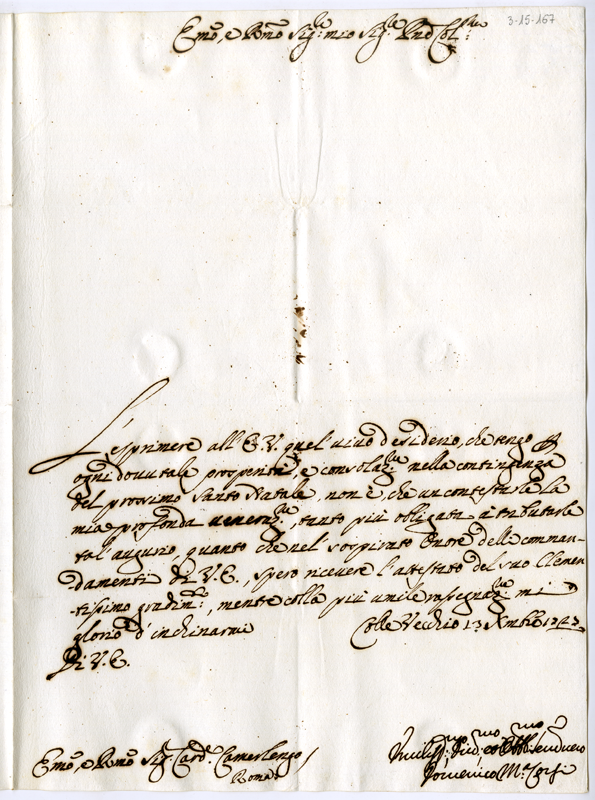 3-15-167
Emo, e Rmo Sig:re mio Sig:re Pnõ Col:mo
L'esprimere all'E.V. quel vivo desiderio, che tengo
ogni dovutale prosperità, e consolaz:ne nella contingenza
del prossimo Santo Natale, non è, che un contestarle la
mia profonda veneraz:ne, tanto più obligata a tributarle
tal'augurio, quanto che nel sospirato onore delle comman-
damenti di V.E., spero ricevere l'attestato del suo Clemen-
tissimo gradim:to, mentre colla più umile rassegnaz:ne mi
glorio d'inchinarmi Colle Vecchio 13 Xmbre
Di V.E.
Emo, e Rmo Sig:r Card:e Camerlengo
Roma
Umiliss:mo Div:mo ed Obb:mo Servidore
Domenico M:a Corsi